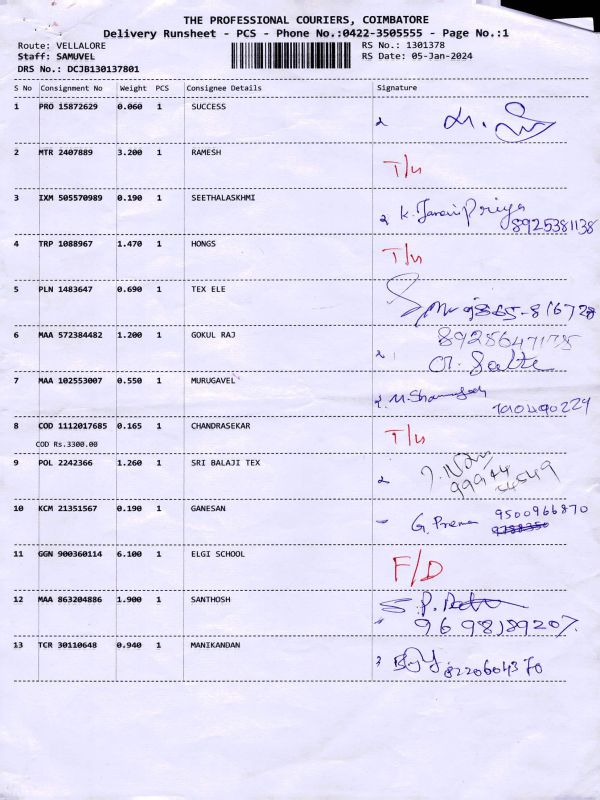 THE PROFESSIONAL COURIERS, COIMBATORE
Delivery Runsheet - PCS - Phone No.:0422-3505555 - Page No.:1
Route: VELLALORE RS No.: 1301378
Staff: SAMUVEL RS Date: 05-Jan-2024
DRS No.: DCJB130137801
S No Consignment No Weight PCS Consignee Details Signature
1 PRO 15872629 0.060 1 SUCCESS
2 MTR 2407889 3.200 1 RAMESH T/u
3 IXM 505570989 0.190 1 SEETHALASKHMI K. Priya
8925381138
4 TRP 1088967 1.470 1 HONGS T/u
5 PLN 1483647 0.690 1 TEX ELE
6 MAA 572384482 1.200 1 GOKUL RAJ
7 MAA 102553007 0.550 1 MURUGAVEL
8 COD 1112017685 0.165 1 CHANDRASEKAR T/u
COD Rs.3300.00
9 POL 2242366 1.260 1 SRI BALAJI TEX
10 KCM 21351567 0.190 1 GANESAN G. Prema 9500966870
11 GGN 900360114 6.100 1 ELGI SCHOOL F/D
12 MAA 863204886 1.900 1 SANTHOSH
13 TCR 30110648 0.940 1 MANIKANDAN 8220604370